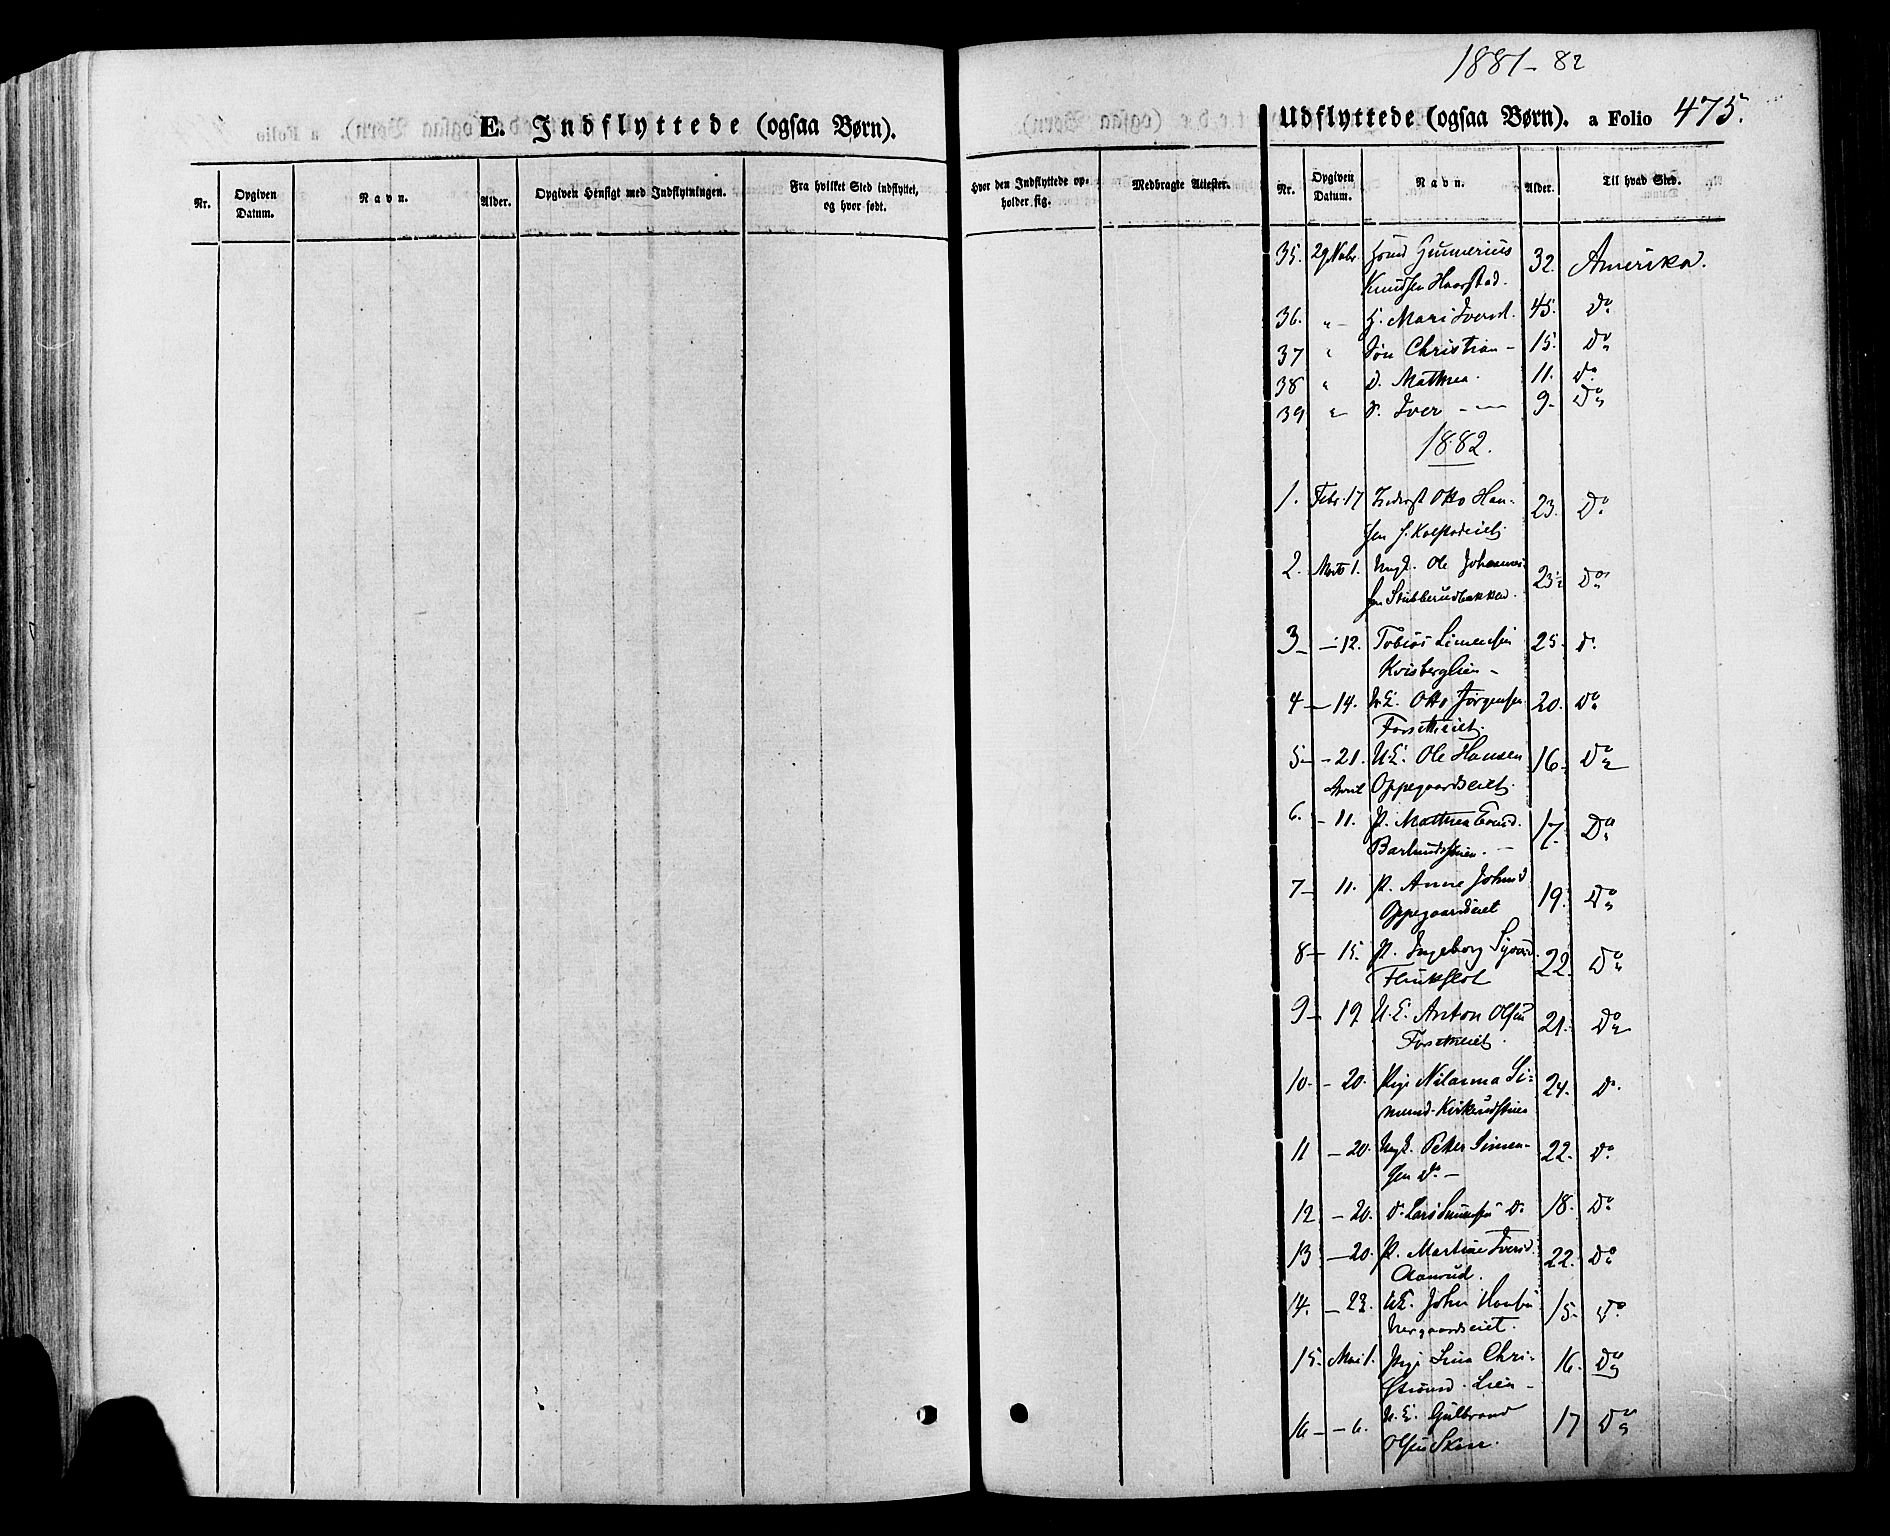 1881-82
E. Indflyttede (ogsaa Børn).
Udflyttede (ogsaa Børn). a Folio 475.
Nr. Opgiven Datum. Navn. Alder. Opgiven Hensigt med Indflytningen. Fra hvilket Sted indflyttet, og hvor født. Hvor den Indflyttede opholder sig. Medbragte Attester.
Nr. Opgiven Datum. Navn. Alder. Til hvad Sted.
35. 29 Nobr. Gunnerius 32. Amerika.
Knudsen Haarstad.
36. " H. Mari Iversd. 45. Do
37 " Søn Christian - 15. Do
38 " D. Mathea. 11. Do
39 " S. Iver - 9. Do
1882.
1. Febr. 17 Otto Han- 23. Do
sen f.
2. Marts 1. Ungk. Ole Johannes- 23½ Do
sen Stubberudbakken.
3 - 12. Tobias Simensen 25. Do
Kvisberglien -
4 - 14. U.E. Otto Jørgensen 20. Do
Forsetheiet.
5 - 21. U.E. Ole Hansen 16. Do
April Oppegaardseiet.
6. - 11. P. Mathea Evensd. 17. Do
7 - 11. P. Anne Johnsd. 19. Do
Oppegaardseiet
8 - 15. P. Ingeborg 22. Do
9 - 19 U.E. Anton Olsen 21. Do
Forsetheiet.
10. - 20. Pige Nilsanna Si- 24. Do
mensd. Kirkerudstuen
11 - 20. Ungk. Petter Simen- 22. Do
sen Do -
12 - 20. Do Lars Simensen Do 18. Do
13 - 20. P. Martine Iversd. 22. Do
Aanrud.
14. - 23. U.E. John Hansen 15. Do
Nergaardseiet.
15. Mai 1. Pige Lina Chri- 16. Do
stiansd. Lien -
16 - 6. U.E. Gulbrand 17 Do
Olsen